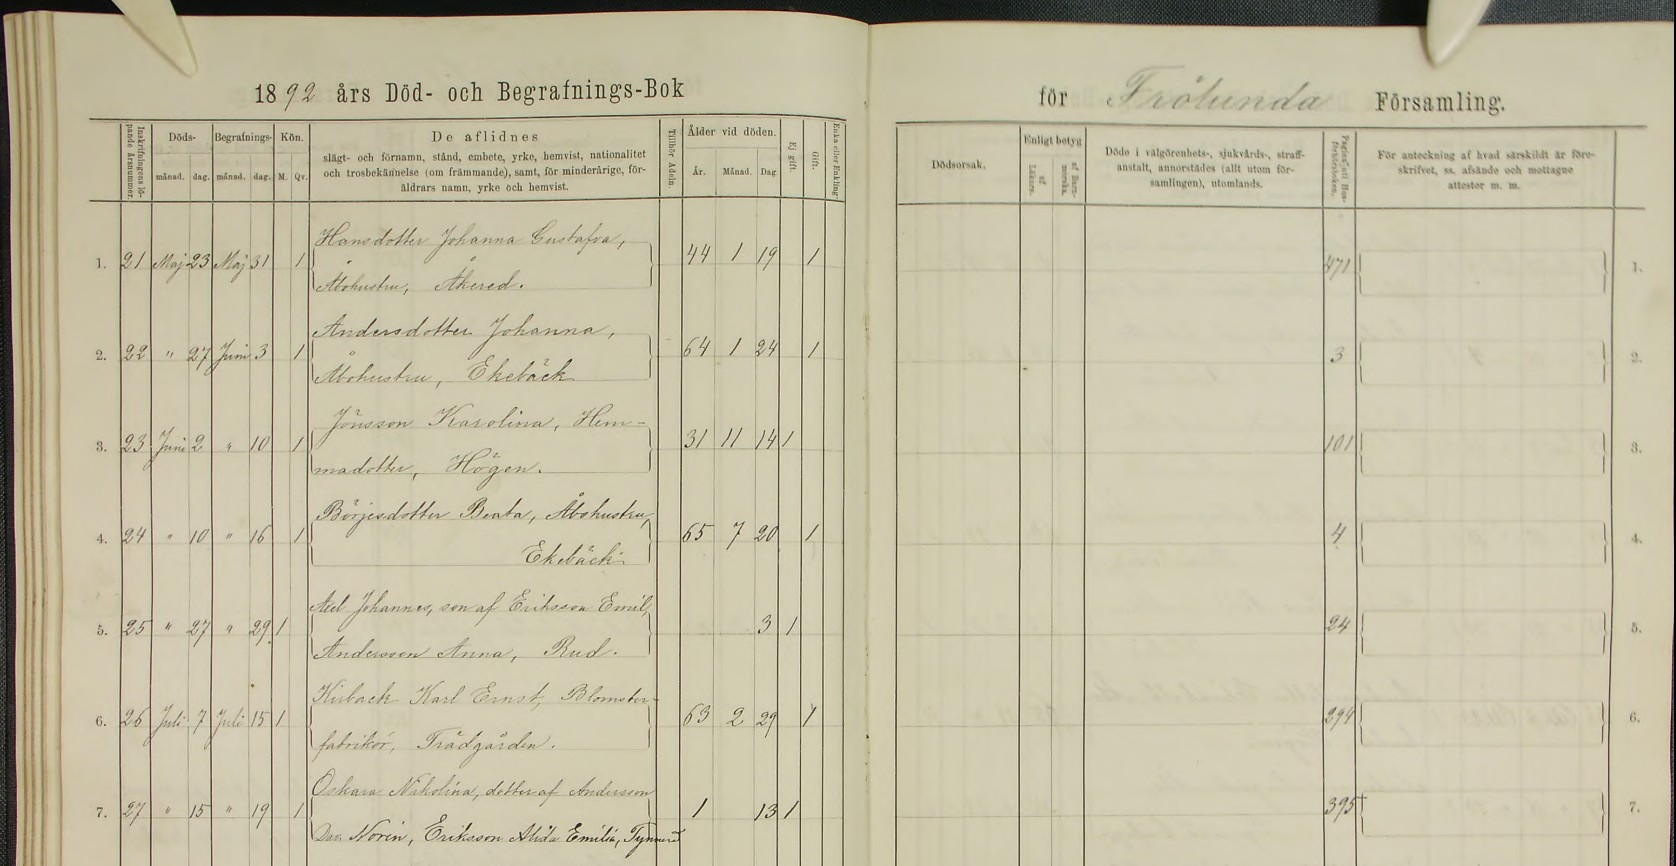 1892 års Död- och Begrafnings-Bok
för Frölunda Församling.
Inskrifningens löpande årsnummer.
Döds-
månad. dag.
Begrafnings-
månad. dag.
Kön.
M. Qv.
De aflidnes
slägt- och förnamn, stånd, embete, yrke, hemvist, nationalitet
och trosbekännelse (om främmande), samt, för minderårige, för-
äldrars namn, yrke och hemvist.
Tillhör Adeln.
Ålder vid döden.
År. Månad. Dag
Ej gift.
Gift.
Enka eller Enkling
Dödsorsak.
Enligt betyg
af Läkare.
af Barnmorska.
Döde i välgörenhets-, sjukvårds-, straff-
anstalt, annorstädes (allt utom för-
samlingen), utomlands.
För anteckning af hvad särskildt är före-
skrifvet, ss. afsände och mottagne
attester m. m.
1. 21 Maj 23 Maj 31 1 Hansdotter Johanna Gustafva, 44 1 19 1 471 1.
Åbohustru, Åkered.
2. 22 " 27 Juni 3 1 Andersdotter Johanna, 64 1 24 1 3 2.
Åbohustru, Ekebäck
3. 23 Juni 2 " 10 1 Jönsson Karolina, Hem- 31 11 14 1 101 3.
madotter, Högen.
4. 24 " 10 " 16 1 Börjesdotter Beata, Åbohustru, 65 7 20 1 4 4.
Ekebäck.
5. 25 " 27 " 29 1 Axel Johannes, son af Eriksson Emil, 3 1 24 5.
Andersson Anna, Rud.
6. 26 Juli 7 Juli 15 1 Kirbach Karl Ernst, Blomster- 63 2 29 1 294 6.
fabrikör, Trädgården.
7. 27 " 15 " 19 1 Oskara Nikolina, dotter af Andersson 1 13 1 395 7.
Norin, Eriksson Alida Emilia, Tynnered